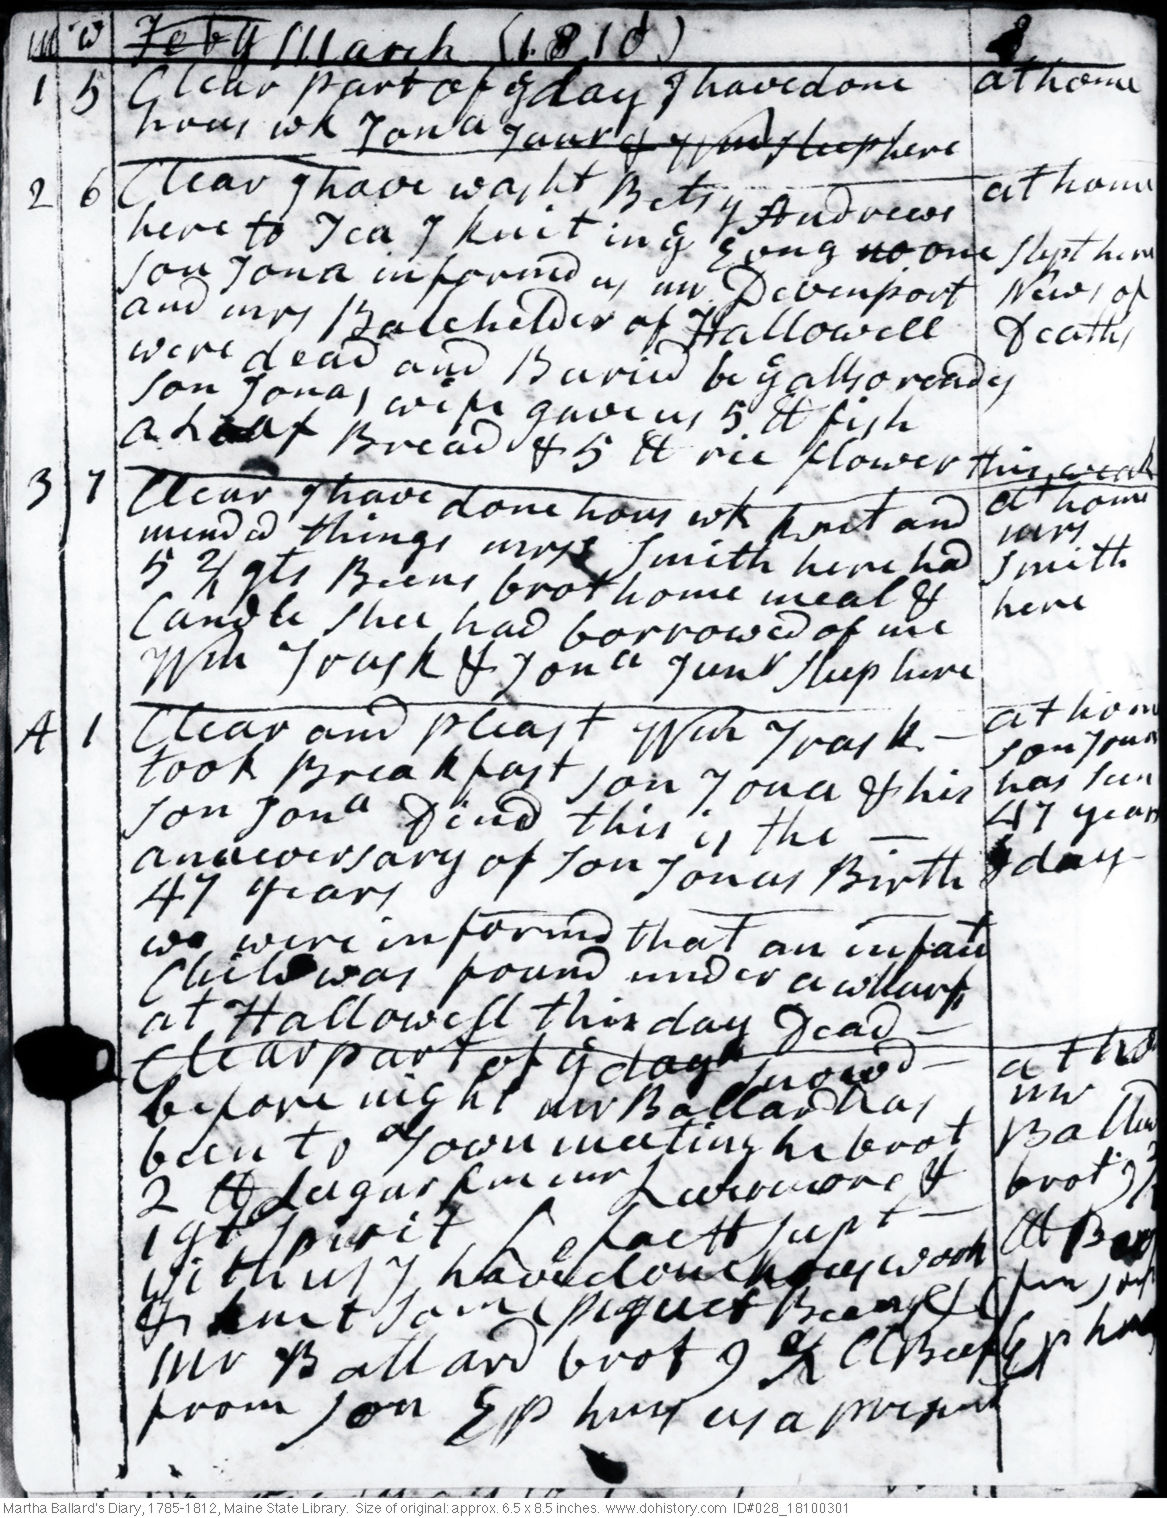 m w Feby March (1810)
1 5 Clear part of ye day I have done at home
hous wk Jona Junr & Wm sleep here
2 6 Clear I have washt Betsy Andrews at home
here to Tea I knit ing & no one slept here
son Jona informd us mr Devenport News of
and mrs Batchelder of Hallowell Deaths
were dead and Buried
son Jonas wife gave us 5 ℔ fish
a loaf Bread & 5 ℔ rie flower this week
3 7 Clear I have done hous wk knit and at home
mendd things mrs Smith here had mrs
5 2/ qts Beens brot home meal & Smith
Candle shee had borrowed of me here
Wm Trask & Jona Junr sleep here
A 1 Clear and pleast Wm Trask – at home
took Breakfast son Jona & his son Jona
son Jona Dind this is the – has seen
anniversary of son Jonas Birth 47 years
47 years day
we were informd that an infant
Child was found under a wharf
at Hallowell this day Dead –
Clear part of ye day snowd – at ho
before night mr Ballard has mr
been to Town meeting he brot Ballard
2 ℔ Sugar from mr Livermore & brot 9
1 qt spirit supt – ℔ Beef
with us I have done hous work from son
& knit som Ephm
Mr Ballard brot 9 ℔ Beef
from son Ephm as a present
Martha Ballard's Diary, 1785-1812, Maine State Library. Size of original: approx. 6.5 x 8.5 inches. www.dohistory.com ID#028_18100301